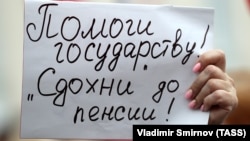 Помоги
государству!
„Сдохни до
пенсии!
Vladimir Smirnov (TASS)